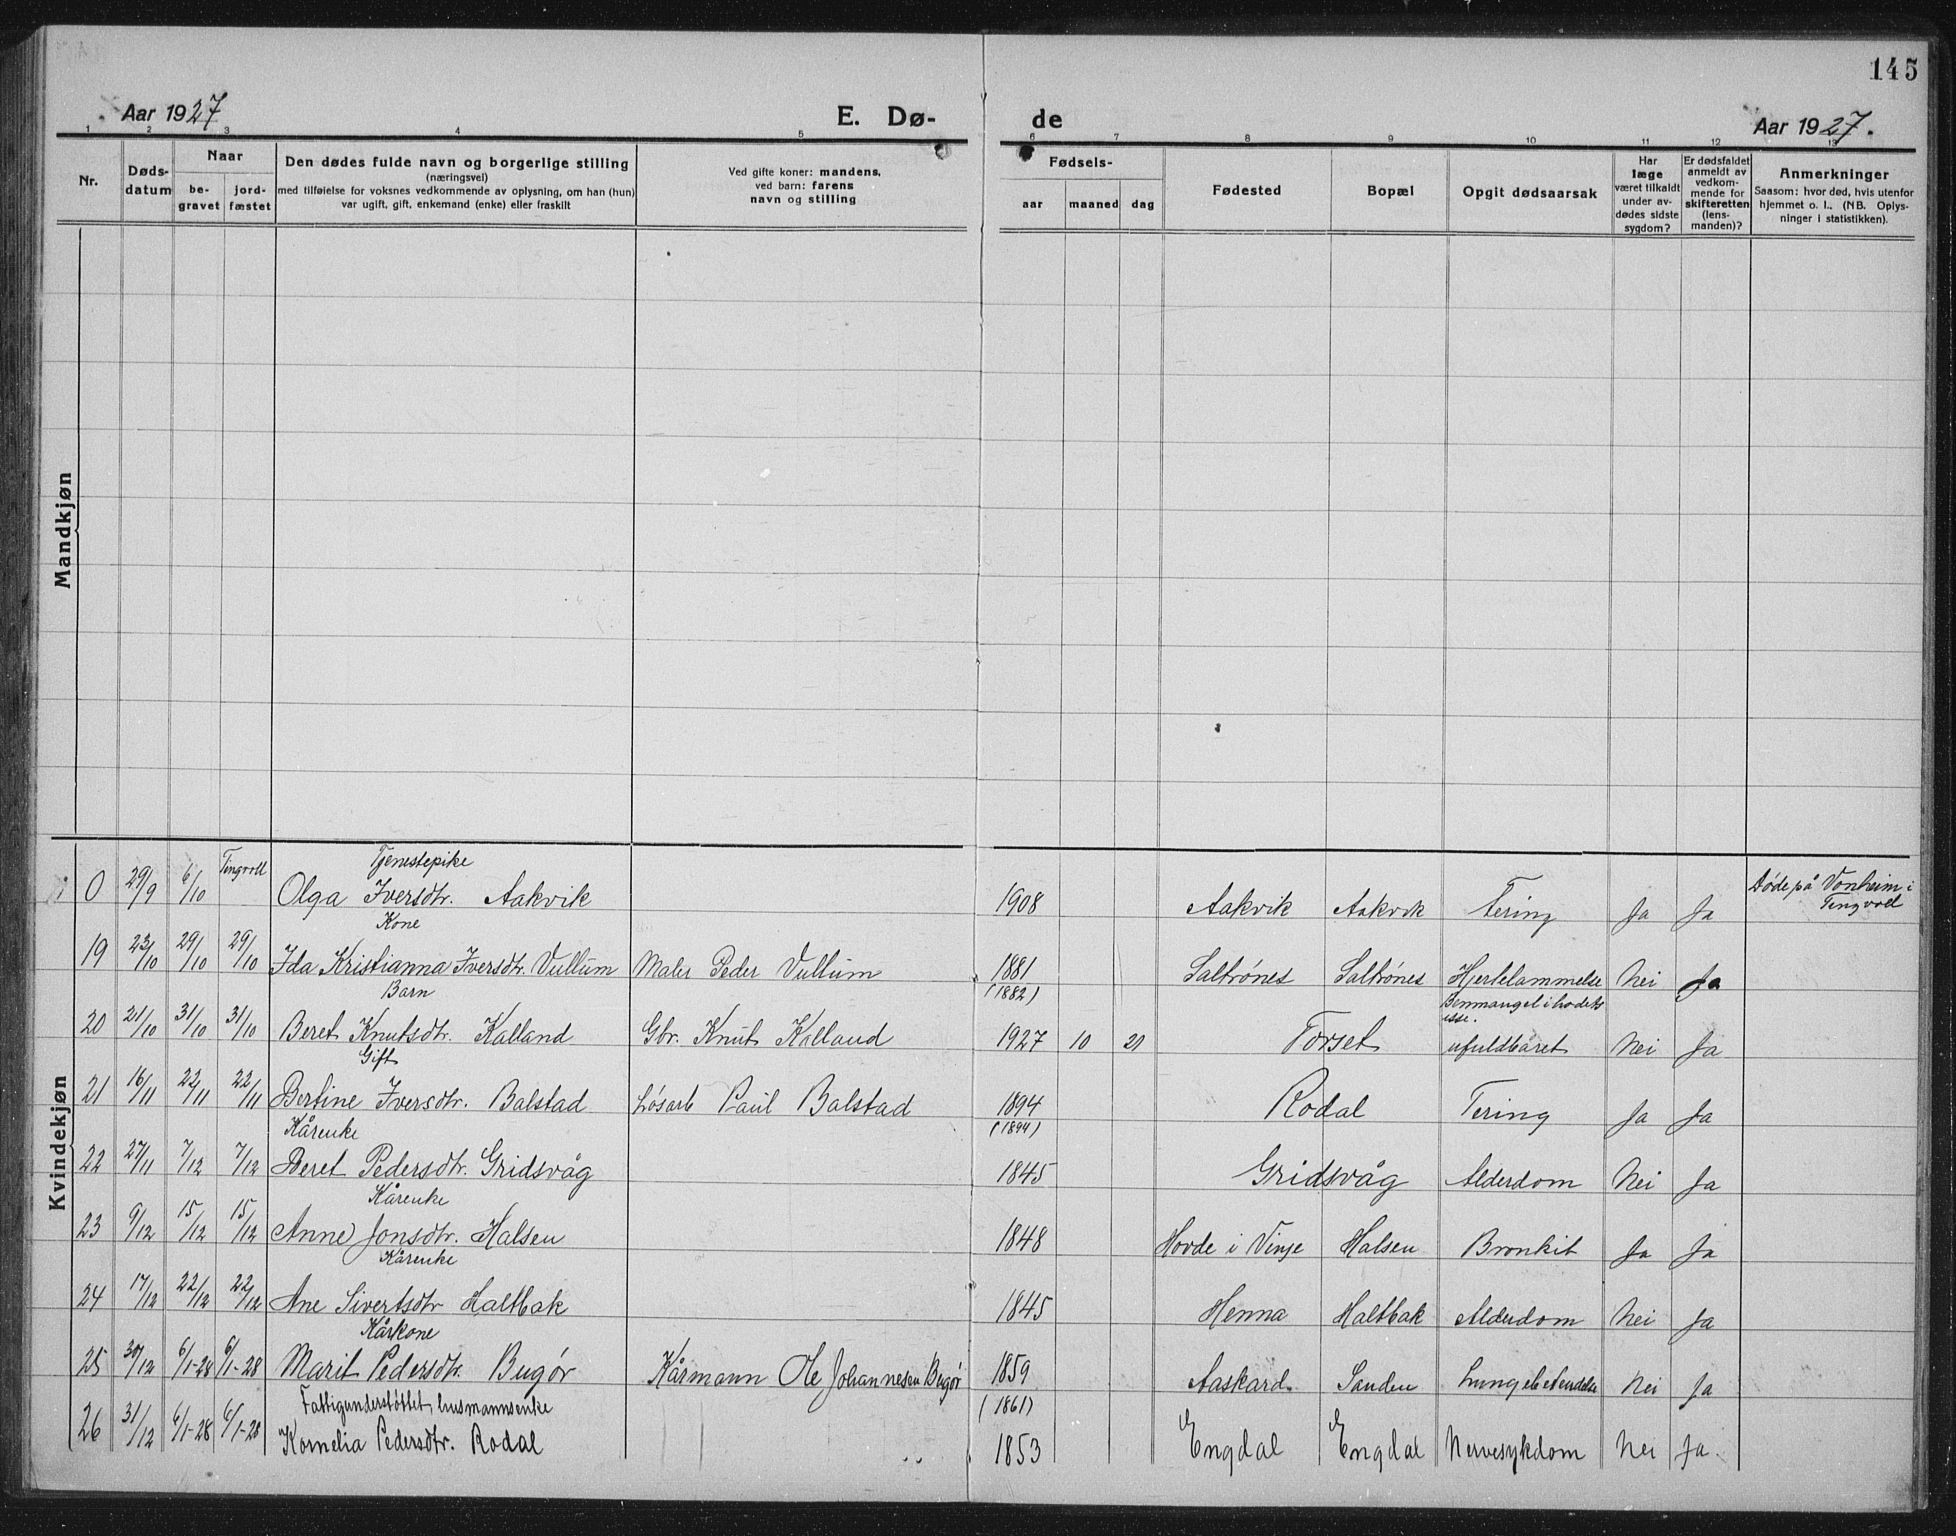 145
Aar 1927
E. Dø-
de
Aar 1927.
1 2 3 4 5 6 7 8 9 10 11 12 13
Nr.
Døds-
datum
Naar
be-
gravet
jord-
fæstet
Den dødes fulde navn og borgerlige stilling
(næringsvei)
med tilføielse for voksnes vedkommende av oplysning, om han (hun)
var ugift, gift, enkemand (enke) eller fraskilt
Ved gifte koner: mandens,
ved barn: farens
navn og stilling
Fødsels-
aar maaned dag
Fødested
Bopæl
Opgit dødsaarsak
Har
læge
været tilkaldt
under av-
dødes sidste
sygdom?
Er dødsfaldet
anmeldt av
vedkom-
mende for
skifteretten
(lens-
manden)?
Anmerkninger
Saasom: hvor død, hvis utenfor
hjemmet o. l.. (NB. Oplys-
ninger i statistikken).
Mandkjøn
Kvindekjøn
Tjenestepike
0 29/9 6/10 Tingvoll Olga Iversdtr. Aakvik 1908 Aakvik Aakvik Tering Ja Ja Døde på Vonheim i
Tingvoll
Kone
19 23/10 29/10 29/10 Ida Kristianna Iversdtr. Vullum Maler Peder Vullum 1881 Saltrønes Saltrønes Hjertelammelse Nei Ja
(1882)
Barn
Benmangel i hodets
isse.
20 21/10 31/10 31/10 Beret Knutsdtr. Kalland Gbr. Knut Kalland 1927 10 20 Torset ufuldbåret Nei Ja
Gift
21 16/11 22/11 22/11 Bertine Iversdtr. Balstad Løsarb Paul Balstad 1894 Rodal Tering Ja Ja
(1894)
Kårenke
22 27/11 7/12 7/12 Beret Pedersdtr. Gridsvåg 1845 Gridsvåg Alderdom Nei Ja
Kårenke
23 9/12 15/12 15/12 Anne Jonsdtr. Halsen 1848 Hovde i Vinje Halsen Bronkit Ja Ja
Kårenke
24 17/12 22/12 22/12 Ane Sivertsdtr Haltbak 1845 Henna Haltbak Alderdom Nei Ja
Kårkone
25 30/12 6/1-28 6/1-28 Marit Pedersdtr. Bugør Kårmann Ole Johannesen Bugør 1859 Aaskard Sanden Lungebetendelse Nei Ja
(1861)
Fattigunderstøttet husmannsenke
26 31/12 6/1-28 6/1-28 Kornelia Pedersdtr. Rodal 1853 Engdal Engdal Nervesykdom Nei Ja.